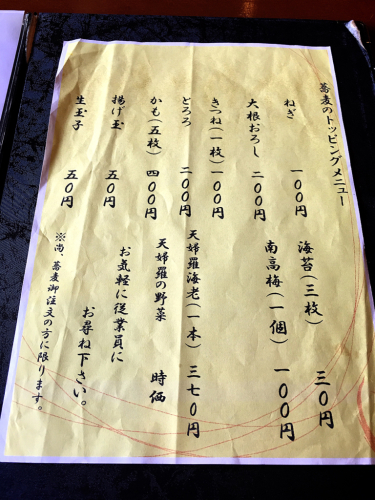 蕎麦のトッピングメニュー
ねぎ 一〇〇円
大根おろし 二〇〇円
きつね(一枚)一〇〇円
とろろ 二〇〇円
かも(五枚)四〇〇円
揚げ玉 五〇円
生玉子 五〇円
海苔(三枚) 三〇円
南高梅(一個) 一〇〇円
天婦羅海老(一本)三七〇円
天婦羅の野菜 時価
お気軽に従業員に
お尋ね下さい。
※尚、蕎麦御注文の方に限ります。